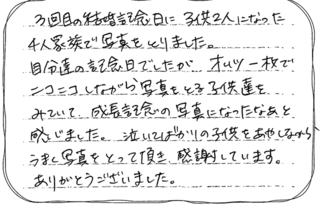 3回目の結婚記念日に子供2人になった
4人家族で写真をとりました。
自分達の記念日でしたが、オムツ一枚で
ニコニコしながら写真をとる子供達を
みていて、成長記念の写真になったなあと
感じました。泣いてばかりの子供をあやしながら、
うまく写真をとって頂き、感謝しています。
ありがとうございました。